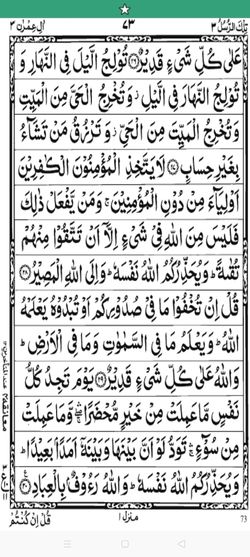 تِلْكَ الرُّسُلُ ٣ ٤٣ اٰلِ عِمْرٰن ٣
عَلٰى كُلِّ شَىْءٍ قَدِيْرٌ ﴿٢٦﴾ تُوْلِجُ الَّيْلَ فِى النَّهَارِ وَ
تُوْلِجُ النَّهَارَ فِى الَّيْلِ ز وَتُخْرِجُ الْحَىَّ مِنَ الْمَيِّتِ
وَتُخْرِجُ الْمَيِّتَ مِنَ الْحَىِّ ز وَتَرْزُقُ مَنْ تَشَآءُ
بِغَيْرِ حِسَابٍ ﴿٢٧﴾ لَا يَتَّخِذِ الْمُؤْمِنُوْنَ الْكٰفِرِيْنَ
اَوْلِيَآءَ مِنْ دُوْنِ الْمُؤْمِنِيْنَ ۚ وَمَنْ يَّفْعَلْ ذٰلِكَ
فَلَيْسَ مِنَ اللّٰهِ فِىْ شَىْءٍ اِلَّاۤ اَنْ تَتَّقُوْا مِنْهُمْ
تُقٰىةً ؕ وَيُحَذِّرُكُمُ اللّٰهُ نَفْسَهٗ ؕ وَاِلَى اللّٰهِ الْمَصِيْرُ ﴿٢٨﴾
قُلْ اِنْ تُخْفُوْا مَا فِىْ صُدُوْرِكُمْ اَوْ تُبْدُوْهُ يَعْلَمْهُ
اللّٰهُ ؕ وَيَعْلَمُ مَا فِى السَّمٰوٰتِ وَمَا فِى الْاَرْضِ ؕ
وَاللّٰهُ عَلٰى كُلِّ شَىْءٍ قَدِيْرٌ ﴿٢٩﴾ يَوْمَ تَجِدُ كُلُّ
نَفْسٍ مَّا عَمِلَتْ مِنْ خَيْرٍ مُّحْضَرًا ۛۖ وَّمَا عَمِلَتْ
مِنْ سُوْٓءٍ ۛۚ تَوَدُّ لَوْ اَنَّ بَيْنَهَا وَبَيْنَهٗۤ اَمَدًۢا بَعِيْدًا ؕ
وَيُحَذِّرُكُمُ اللّٰهُ نَفْسَهٗ ؕ وَاللّٰهُ رَءُوْفٌۢ بِالْعِبَادِ ﴿٣٠﴾
قُلْ اِنْ كُنْتُمْ منزل ١ 73